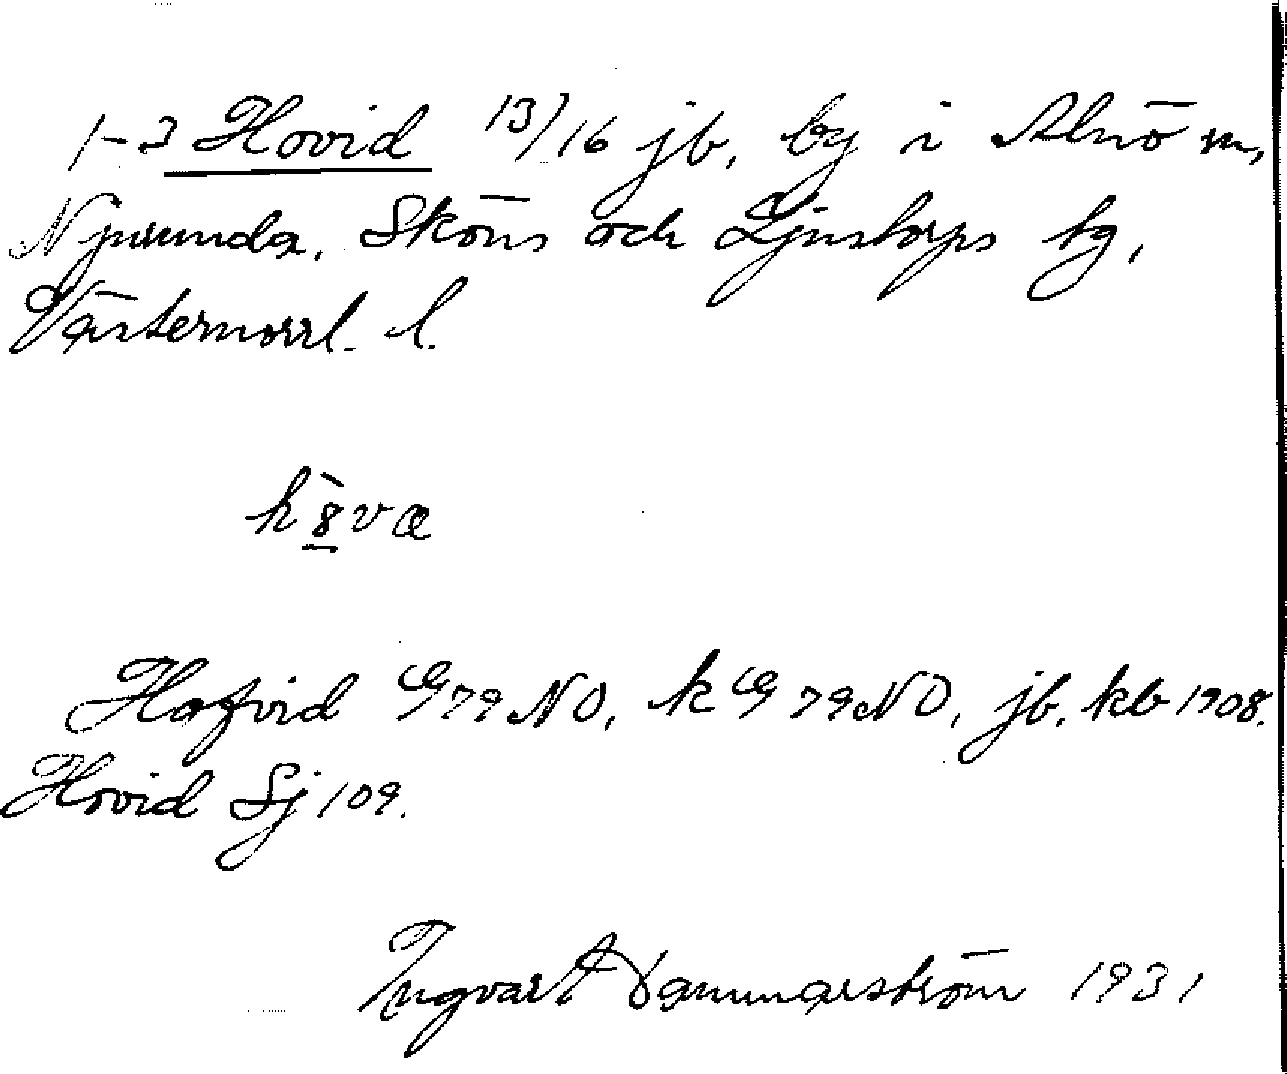 1-3 Hovid 13/16 jb, by i Alnö sn,
Njurunda, Sköns och Ljustorps tg,
Västernorrl. l.
Hofvid G 79 NO, k G 79 NO, jb, kb 1908.
Hovid Sj 109.
Ingvart Dammarström 1931